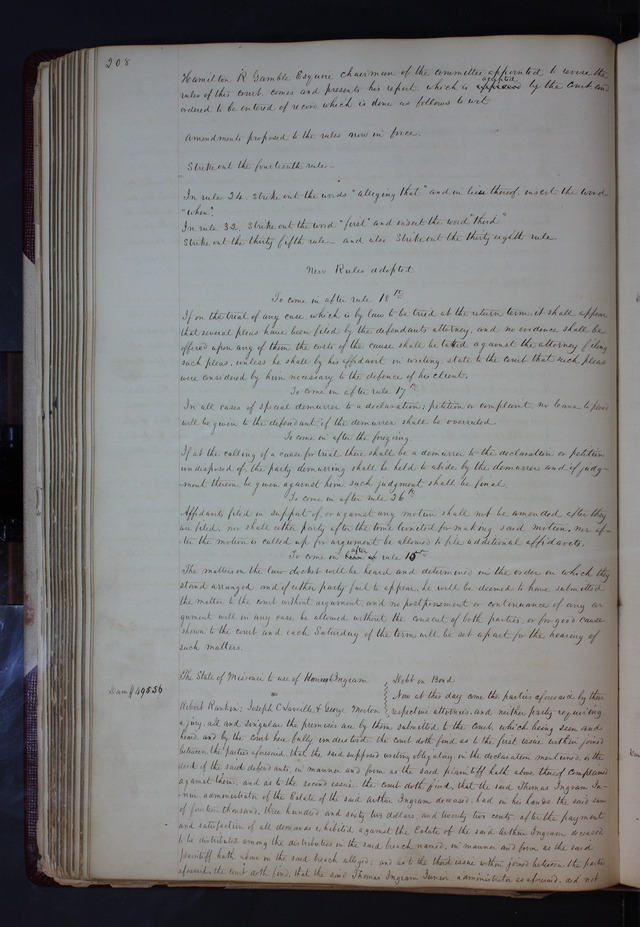 208
Hamilton R Gamble Esquire chairman of the committee appointed to revise the
rules of this court comes and presents his report which is adopted by the Court and
ordered to be entered of record which is done as follows to wit
Amendments proposed to the rules now in force.
Strike out the fourteenth rule
In rule 24. strike out the words "alleging that" and in lieu thereof insert the word
"when".
In rule 32. Strike out the word "first" and insert the word "third"
Strike out the thirty fifth rule and also strike out the thirty eighth rule
New Rules adopted
To come in after rule 18th
If on the trial of any case which is by law to be tried at the return term, it shall appear
that several pleas have been filed by the defendants attorney, and no evidence shall be
offered upon any of them the costs of the cause shall be taxed against the attorney filing
such pleas, unless he shall by his affidavit in writing state to the court that such pleas
were considered by him necessary to the defence of his client.
To come in after rule 17th
In all cases of special demurrer to a declaration, petition or complaint no leave to plead
will be given to the defendant if the demurrer shall be overruled.
To come in after the foregoing
If at the calling of a cause for trial there shall be a demurrer to the declaration or petition
undisposed of, the party demurring shall be held to abide by the demurrer and if judg-
ment therein be given against him such judgment shall be final.
To come in after rule 26th
Affidavits filed in support of, or against any motion shall not be amended after they
are filed, nor shall either party after the time limited for making said motion, nor af-
ter the motion is called up for argument be allowed to file additional affidavits.
To come in after rule 15th
The matters on the law docket will be heard and determined in the order in which they
stand arranged and if either party fail to appear, he will be deemed to have submitted
the matter to the court without argument, and no postponement or continuance of any ar
gument will in any case be allowed without the consent of both parties, or for good cause
shown to the court and each Saturday of the term will be set apart for the hearing of
such matters.
The State of Missouri to use of Ingram Debt on Bond
Dam $ 495.56
vs Now at this day come the parties aforesaid by their
Robert Rankin, Joseph C Laveille & George Morton respective attornies, and neither party requiring
a jury, all and singular the premises are by them submitted to the Court, which being seen and
heard and by the court here fully understood the court doth find as to the first issue within joined
between the parties aforesaid, that the said supposed writing obligatory in the declaration mentioned, is the
deed of the said defendants, in manner and form as the said plaintiff hath above thereof complained
against them, and as to the second issue the court doth find, that the said Thomas Ingram Ju-
nior administrator of the Estate of the said Arthur Ingram deceased, had in his hands the said sum
of fourteen thousand, three hundred and sixty two dollars, and twenty two cents, after the payment
and satisfaction of all demands exhibited against the Estate of the said Arthur Ingram deceased
to be distributed among the distributees in the said breach named, in manner and form as the said
plaintiff hath above in the said breach alleged, and as to the third issue within joined between the parties
aforesaid, the court doth find, that the said Thomas Ingram Junior, administrator as aforesaid, did not